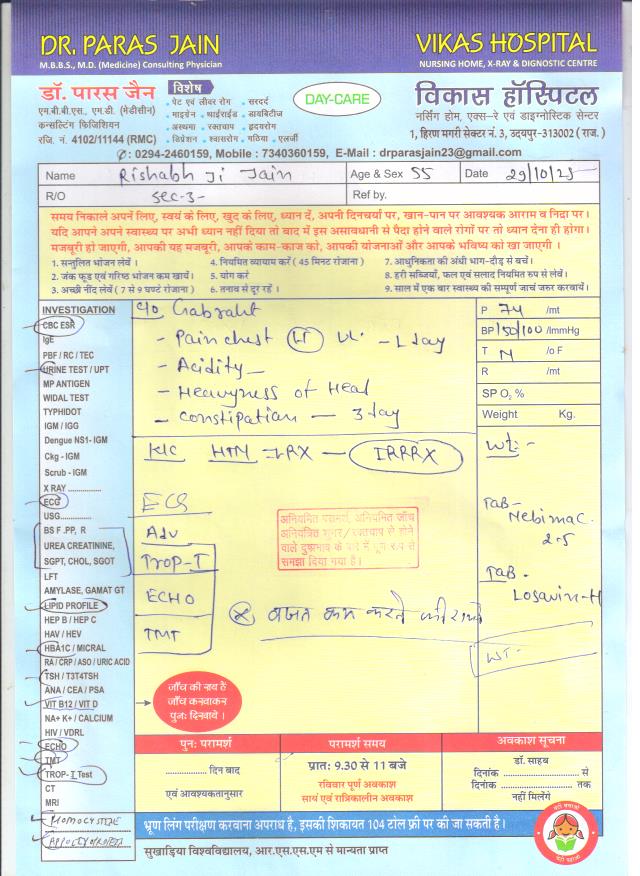 DR. PARAS JAIN
M.B.B.S., M.D. (Medicine) Consulting Physician
VIKAS HOSPITAL
NURSING HOME, X-RAY & DIGNOSTIC CENTRE
डॉ. पारस जैन
एम.बी.बी.एस., एम.डी. (मेडीसीन)
कन्सल्टिंग फिजिशियन
रजि. नं. 4102/11144 (RMC)
विशेष
• पेट एवं लीवर रोग • सरदर्द
• माइग्रेन • थाईराईड • डायबिटीज
• अस्थमा • रक्तचाप • हृदयरोग
• डिप्रेशन • श्वासरोग • गठिया • एलर्जी
DAY-CARE
विकास हॉस्पिटल
नर्सिंग होम, एक्स-रे एवं डाइग्नोस्टिक सेन्टर
1, हिरण मगरी सेक्टर नं. 3, उदयपुर-313002 ( राज. )
: 0294-2460159, Mobile : 7340360159, E-Mail : drparasjain23@gmail.com
Name Rishabh Ji Jain Age & Sex 55 Date 29/10/25
R/O Sec-3- Ref by.
समय निकाले अपनें लिए, स्वयं के लिए, खुद के लिए, ध्यान दें, अपनी दिनचर्या पर, खान-पान पर आवश्यक आराम व निद्रा पर।
यदि आपने अपने स्वास्थ्य पर अभी ध्यान नहीं दिया तो बाद में इस असावधानी से पैदा होने वाले रोगों पर तो ध्यान देना ही होगा।
मजबूरी हो जाएगी, आपकी यह मजबूरी, आपके काम-काज को, आपकी योजनाओं और आपके भविष्य को खा जाएगी ।
1. सन्तुलित भोजन लेवें । 4. नियमित व्यायाम करें ( 45 मिनट रोजाना ) 7. आधुनिकता की अंधी भाग-दौड़ से बचें।
2. जंक फूड एवं गरिष्ठ भोजन कम खायें। 5. योग करें 8. हरी सब्जियाँ, फल एवं सलाद नियमित रुप से लेवें।
3. अच्छी नींद लेवें ( 7 से 9 घण्टे रोजाना ) 6. तनाव से दूर रहें । 9. साल में एक बार स्वास्थ्य की सम्पूर्ण जाचं जरुर करवायें।
INVESTIGATION
CBC ESR
IgE
PBF / RC / TEC
URINE TEST / UPT
MP ANTIGEN
WIDAL TEST
TYPHIDOT
IGM / IGG
Dengue NS1- IGM
Ckg - IGM
Scrub - IGM
X RAY ...............
ECG
USG..............
BS F .PP, R
UREA CREATININE,
SGPT, CHOL, SGOT
LFT
AMYLASE, GAMAT GT
LIPID PROFILE
HEP B / HEP C
HAV / HEV
HBA1C / MICRAL
RA / CRP / ASO / URIC ACID
TSH / T3T4TSH
ANA / CEA / PSA
VIT B12 / VIT D
NA+ K+ / CALCIUM
HIV / VDRL
ECHO
TMT
TROP- I Test
CT
MRI
c/o Gabraht
- Pain chest (LT) - 1 day
- Acidity -
- Heavyness of Head
- Constipation - 3 day
K/C HTN RX - IRRRX
ECG
Adv
Trop-T
ECHO
TMT
अनियमित परामर्श, अनियमित जाँच
अनियंत्रित शुगर / रक्तचाप से होने
वाले दुष्प्रभाव के बारे में पूर्ण रूप से
समझा दिया गया है।
वजन कम करने की
जाँच की नाय हैं
जाँच करवाकर
पुनः दिखावें।
P 74 /mt
BP 150/100 /ImmHg
T N /o F
R /mt
SP O2 %
Weight Kg.
TAB-
Nebimac
2.5
TAB-
Losavin-H
पुनः परामर्श
................ दिन बाद
एवं आवश्यकतानुसार
परामर्श समय
प्रातः 9.30 से 11 बजे
रविवार पूर्ण अवकाश
सायं एवं रात्रिकालीन अवकाश
अवकाश सूचना
डॉ. साहब
दिनांक ............................ से
दिनांक ............................ तक
नहीं मिलेंगे
भ्रूण लिंग परीक्षण करवाना अपराध है, इसकी शिकायत 104 टोल फ्री पर की जा सकती है।
सुखाड़िया विश्वविद्यालय, आर.एस.एस.एम से मान्यता प्राप्त
बेटी बचाओ
बेटी पढ़ाओ